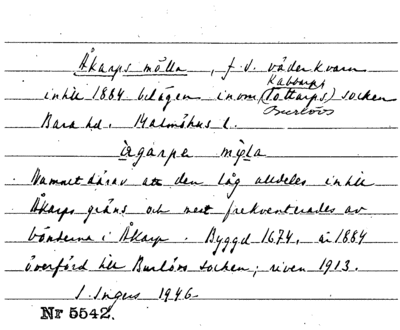 Åkarps mölla, f.d. väderkvarn
Kabbarps
intill 1884 belägen inom (Tottarps) socken
Burlövs
Bara hd. Malmöhus l.
ågarpa myla
Namnet därav att den låg alldeles intill
Åkarps gräns och mest frekventerades av
bönderna i Åkarp. Byggd 1674, år 1884
överförd till Burlövs socken; riven 1913.
I. Ingers 1946.
Nr 5542.